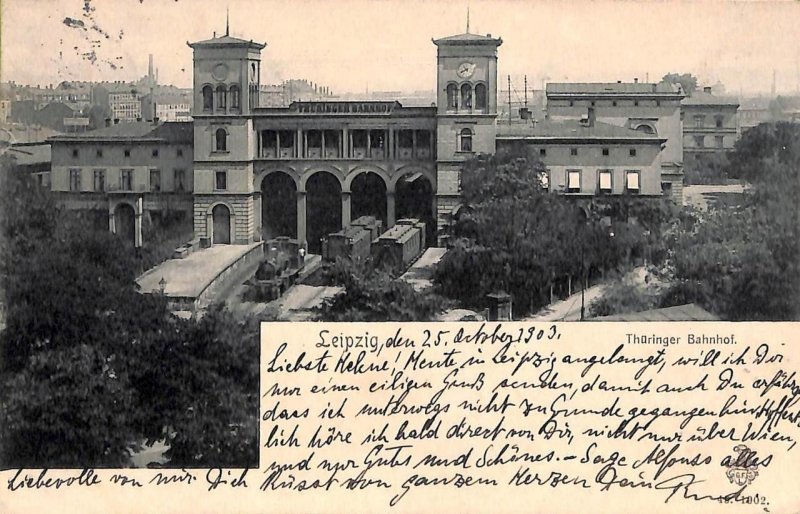 THÜRINGER BAHNHOF
Leipzig, den 25. October 1903.
Thüringer Bahnhof.
Liebste Helene! Heute in Leipzig angelangt, will ich Dir
nur einen eiligen Gruß senden, damit auch Du erfährst
dass ich unterwegs nicht zu Grunde gegangen bin. Hoffent-
lich höre ich bald direct von Dir, nicht nur über Wien,
und nur Gutes und Schönes. - Sage Alfonso alles
Liebevolle von mir. Dich küsst von ganzem Herzen Dein
1902.